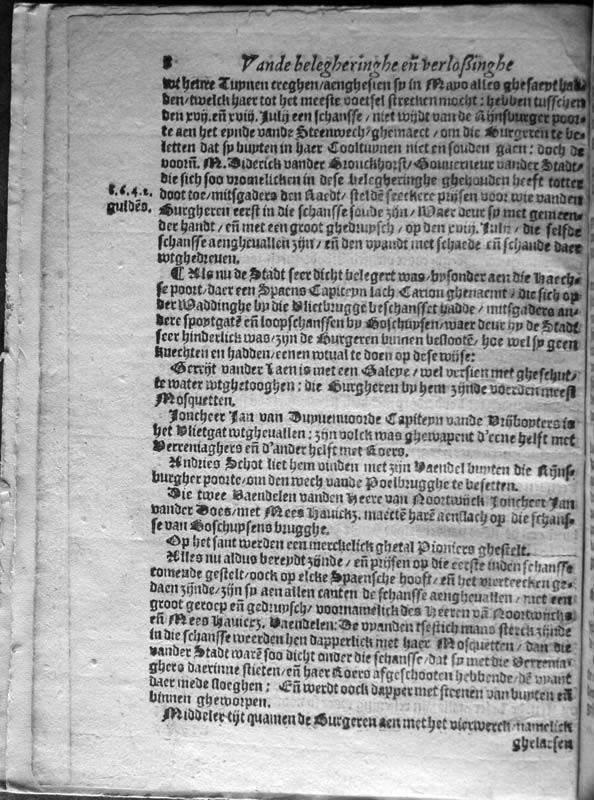 8 Vande belegheringhe eñ verloßinghe
wt heure Tuynen creghen/aenghesien sy in Mayo alles ghesaeyt had
den/twelck haer tot het meeste voetsel strecken mocht: hebben tusschen
den xvij. eñ xviij. Julij een schansse/ niet wijdt van de Rijnsburger poor-
te aen het eynde vande Steenwech/ghemaect/ om die Burgeren te be-
letten dat sy buyten in haer Cooltuynen niet en souden gaen: doch de
voorñ. M. Diderick vander Bronckhorst/Gouverneur vander Stadt/
die sich soo vromelicken in dese belegheringhe ghehouden heeft totter
doot toe/mitsgaders den Raedt/ stelde seeckere prijsen voor wie vanden
Burgheren eerst in die schansse soude zijn/ Waer deur sy met gemeen-
der handt/ eñ met een groot ghedruysch/ op den xviij. Julij/ die selfde
schansse aengheuallen zijn/ eñ den vyandt met schaede eñ schande daer
wtghedreuen.
8.6.4.2.
guldẽs.
¶ Als nu de Stadt seer dicht belegert was/bysonder aen die Haech-
se poort/daer een Spaens Capiteyn lach Carion ghenaemt/ die sich op
der Waddinghe by die Vlietbrugge beschansset hadde/ mitsgaders an-
dere spoytgatẽ eñ loopschanssen by Boschuysen/waer deur hy de Stadt
seer hinderlick was/zijn de Burgeren binnen beslootẽ/ hoe wel sy geen
knechten en hadden/eenen wtual te doen op dese wijse:
Gerrijt vander Laen is met een Galeye/ wel versien met gheschut/
te water wtghetooghen: die Burgheren by hem zijnde voerden meest
Mosquetten.
Joncheer Jan van Duyuenuoorde Capiteyn vande Vrijbuyters is
het Vlietgat wtgheuallen: zijn volck was ghewapent d'eene helft met
Verreniaghers eñ d'ander helft met Roers.
Andries Schot liet hem vinden met zijn Vaendel buyten die Rijns-
burgher poorte/om den wech vande Poelbrugghe te besetten.
Die twee Vaendelen vanden Heere van Noortwijck Joncheer Jan
vander Does/met Mees Hauickz. maectẽ harẽ aenslach op die schans-
se van Boschuysens brugghe.
Op het sant werden een merckelick ghetal Pioniers ghestelt.
Alles nu aldus bereydt zijnde/ eñ prijsen op die eerste inden schansse
comende gestelt/oock op elcke Spaensche hooft/ eñ het vierteecken ge-
daen zijnde/zijn sy aen allen canten de schansse aengheuallen/ met een
groot geroep eñ gedruysch/ voornamelick des Heeren vã Noortwijcks
eñ Mees Hauicxz. Vaendelen: De vyanden tsestich mans sterck zijnde
in die schansse weerden hen dapperlick met haer Mosquetten/ dan die
vander Stadt warẽ soo dicht onder die schansse/dat sy met die Verrenia-
ghers daerinne stieten/ eñ haer Roers afgeschooten hebbende/ dẽ vyant
daer mede sloeghen: Eñ werdt oock dapper met steenen van buyten eñ
binnen gheworpen.
Middeler tijt quamen de Burgeren aen met het vierwerck/namelick
ghelaesen